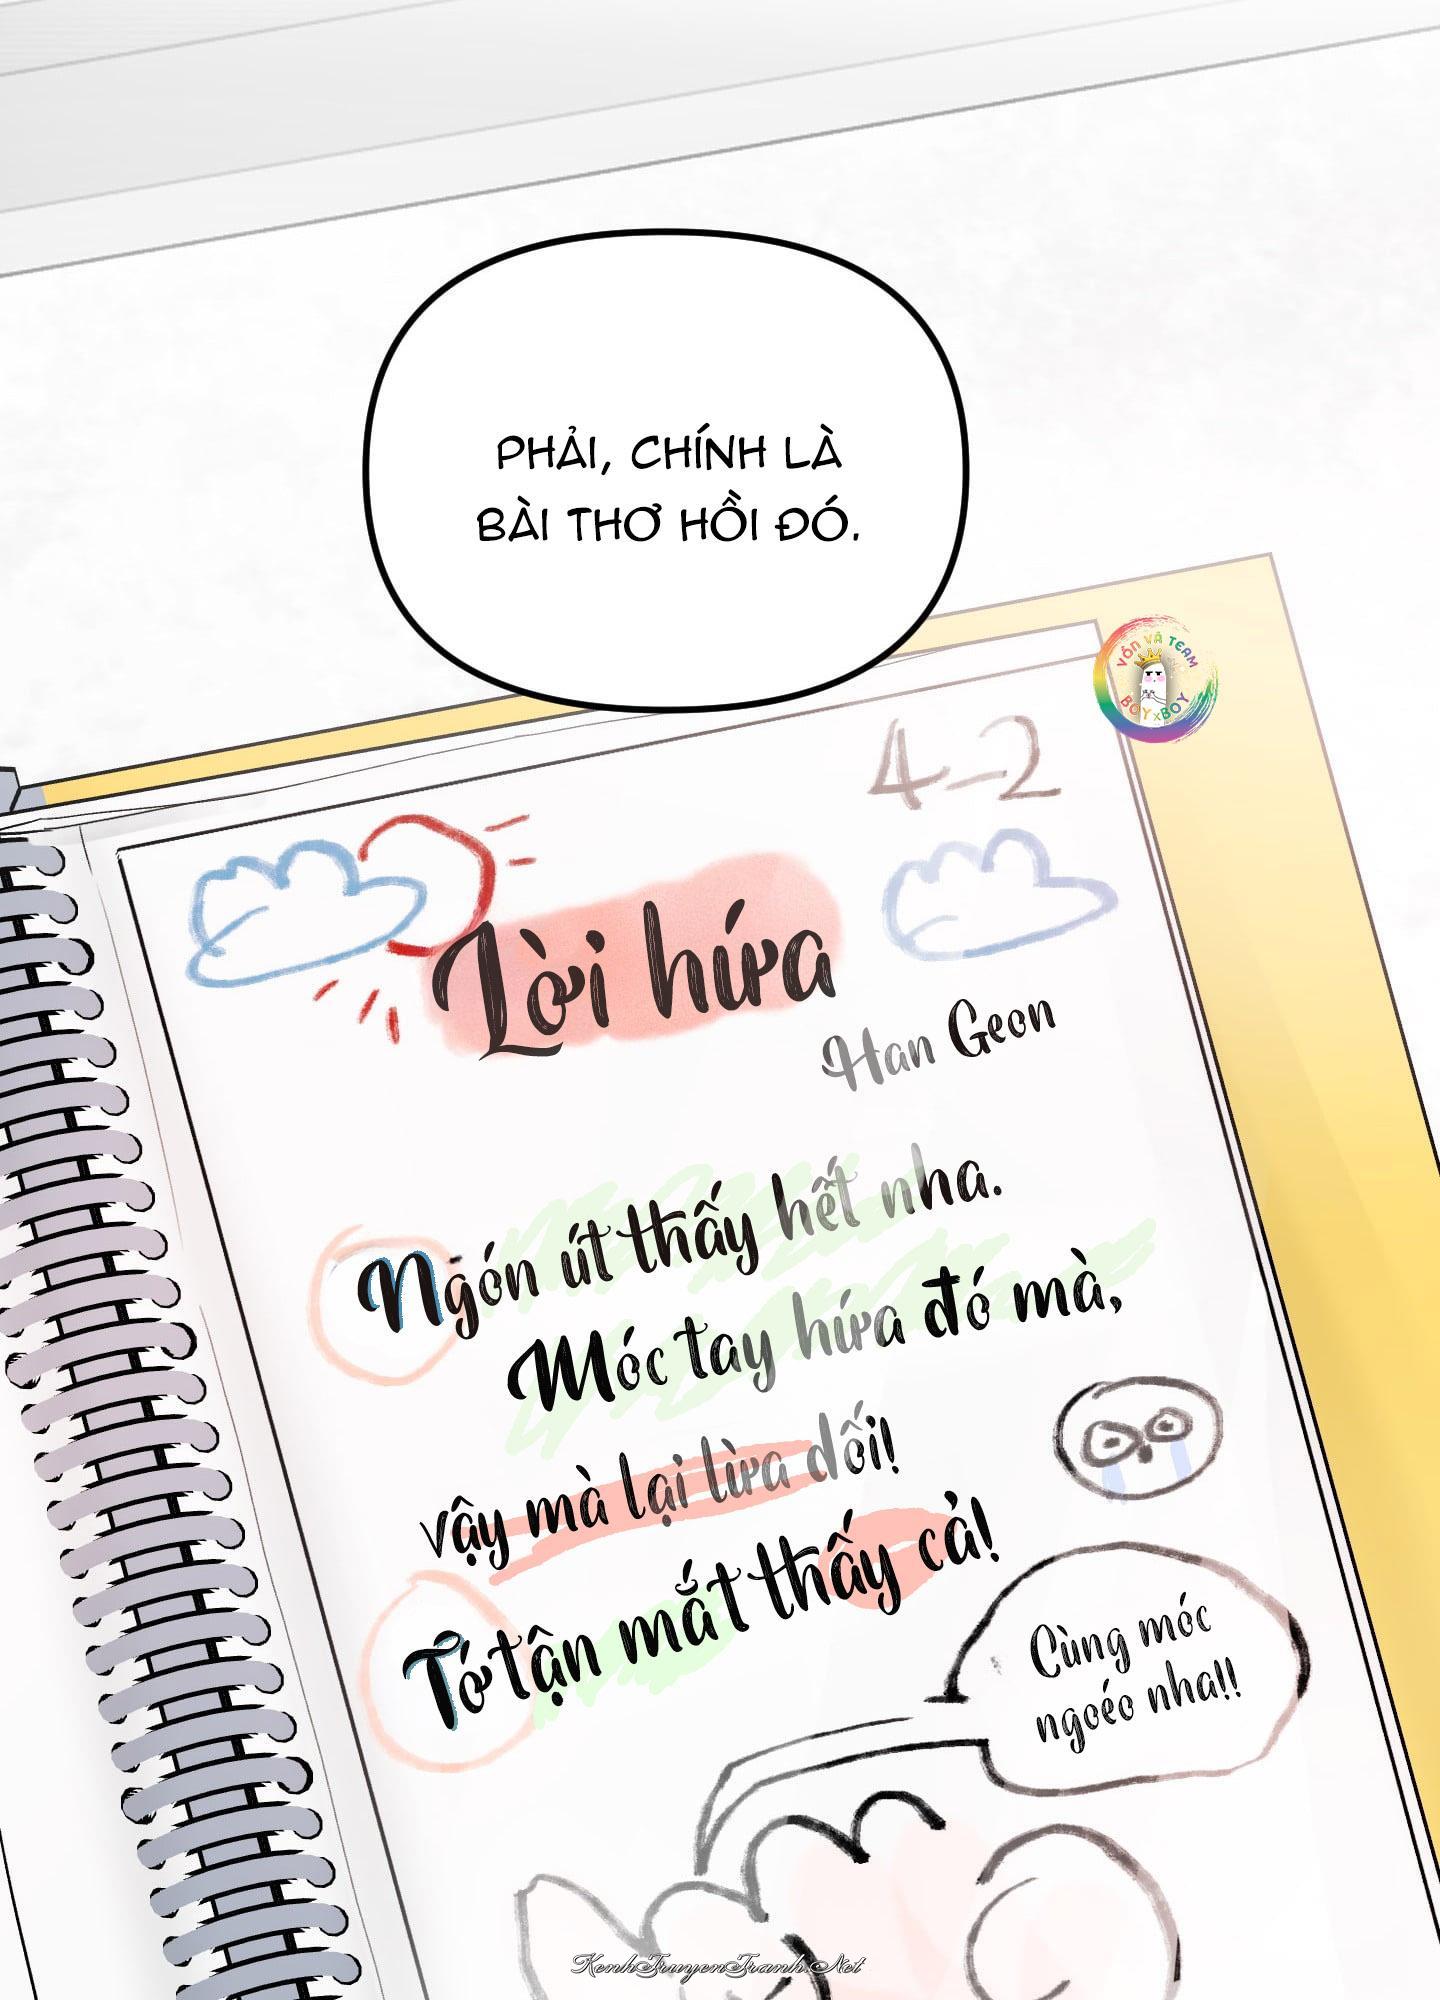 PHẢI, CHÍNH LÀ
BÀI THƠ HỒI ĐÓ.
VỐN VÃ TEAM
BOYxBOY
4-2
Lời hứa
Han Geon
Ngón út thấy hết nha.
Móc tay hứa đó mà,
vậy mà lại lừa dối!
Tớ tận mắt thấy cả!
Cùng móc
ngoéo nha!!
KenhTruyenTranh.Net